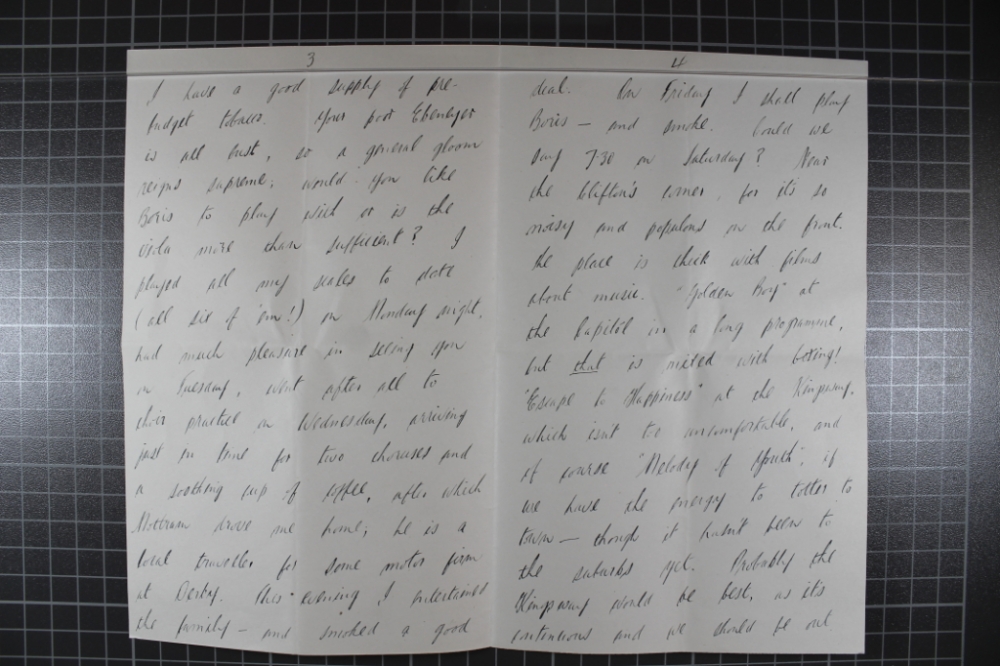 3
I have a good supply of pre-
budget tobacco. Your poor Ebenezer
is all bust, so a general gloom
reigns supreme; would you like
Boris to play with or is the
viola more than sufficient? I
played all my scales to date
(all six of 'em!) on Monday night,
had much pleasure in seeing you
on Tuesday, went after all to
choir practice on Wednesday, arriving
just in time for two choruses and
a soothing cup of coffee, after which
Mottram drove me home; he is a
local traveller for some motor firm
at Derby. This evening I entertained
the family — and smoked a good
4
deal. On Friday I shall play
Boris — and smoke. Could we
say 7-30 on Saturday? Near
the Clifton's corner, for it's so
noisy and populous on the front.
The place is thick with films
about music. "Golden Boy" at
the Capitol in a long programme,
but that is mixed with boxing!
"Escape to Happiness" at the Kingsway,
which isn't too uncomfortable, and
of course "Melody of Youth", if
we have the energy to totter to
town — though it hasn't been to
the suburbs yet. Probably the
Kingsway would be best, as it's
continuous and we should be out